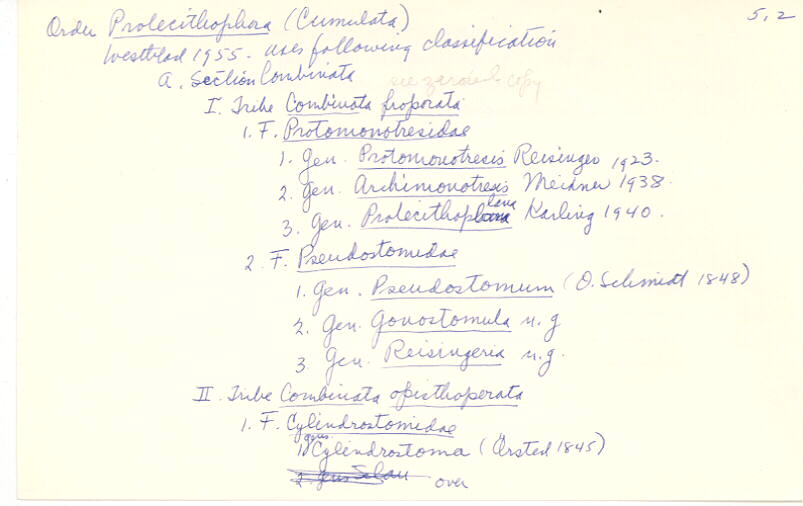 5,2
Order Prolecithophora (Cumulata)
Westblad 1955. uses following classification
A. Section Combinata see zerox copy
I. Tribe Combinata proporata
1. F. Protomonotresidae
1. gen. Protomonotresis Reisinger 1923.
2. gen. Archimonotresis Meixner 1938.
3. gen. Prolecithoplana Karling 1940.
2. F. Pseudostomidae
1. gen. Pseudostomum (O. Schmidt 1848)
2. gen. Gonostomula n.g
3. gen. Reisingeria n.g.
II. Tribe Combinata opisthoporata
1. F. Cylindrostomidae
1) genus Cylindrostoma (Örsted 1845)
over